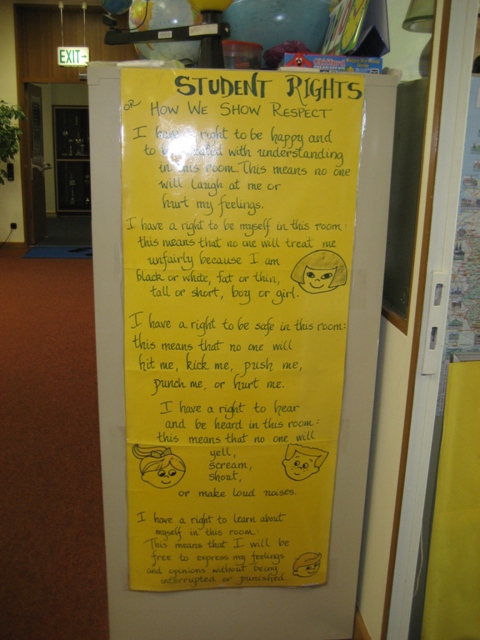 EXIT
STUDENT RIGHTS
OR HOW WE SHOW RESPECT
I have a right to be happy and
to be treated with understanding
in this room. This means no one
will laugh at me or
hurt my feelings.
I have a right to be myself in this room:
this means that no one will treat me
unfairly because I am
black or white, fat or thin,
tall or short, boy or girl.
I have a right to be safe in this room:
this means that no one will
hit me, kick me, push me,
punch me, or hurt me.
I have a right to hear
and be heard in this room:
this means that no one will
yell,
scream,
shout,
or make loud noises.
I have a right to learn about
myself in this room.
This means that I will be
free to express my feelings
and opinions without being
interrupted or punished.